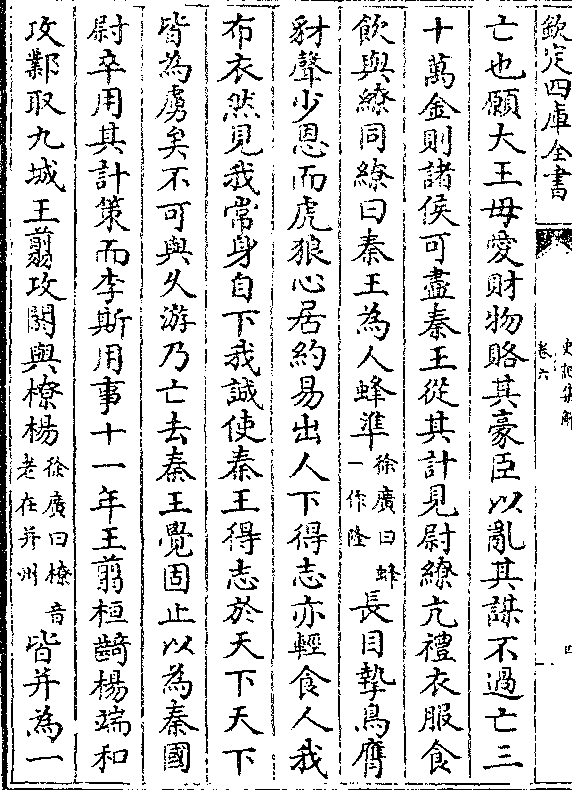 欽定四庫全書
史記集解
卷六
四
亡也願大王毋愛財物賂其豪臣以亂其謀不過亡三
十萬金則諸侯可盡秦王從其計見尉繚亢禮衣服食
飲與繚同繚曰秦王為人蜂準徐廣曰蜂一作隆長目摯鳥膺
豺聲少恩而虎狼心居約易出人下得志亦輕食人我
布衣然見我常身自下我誠使秦王得志於天下天下
皆為虜矣不可與久游乃亡去秦王覺固止以為秦國
尉卒用其計策而李斯用事十一年王翦桓齮楊端和
攻鄴取九城王翦攻閼與橑楊徐廣曰橑音老在并州皆并為一